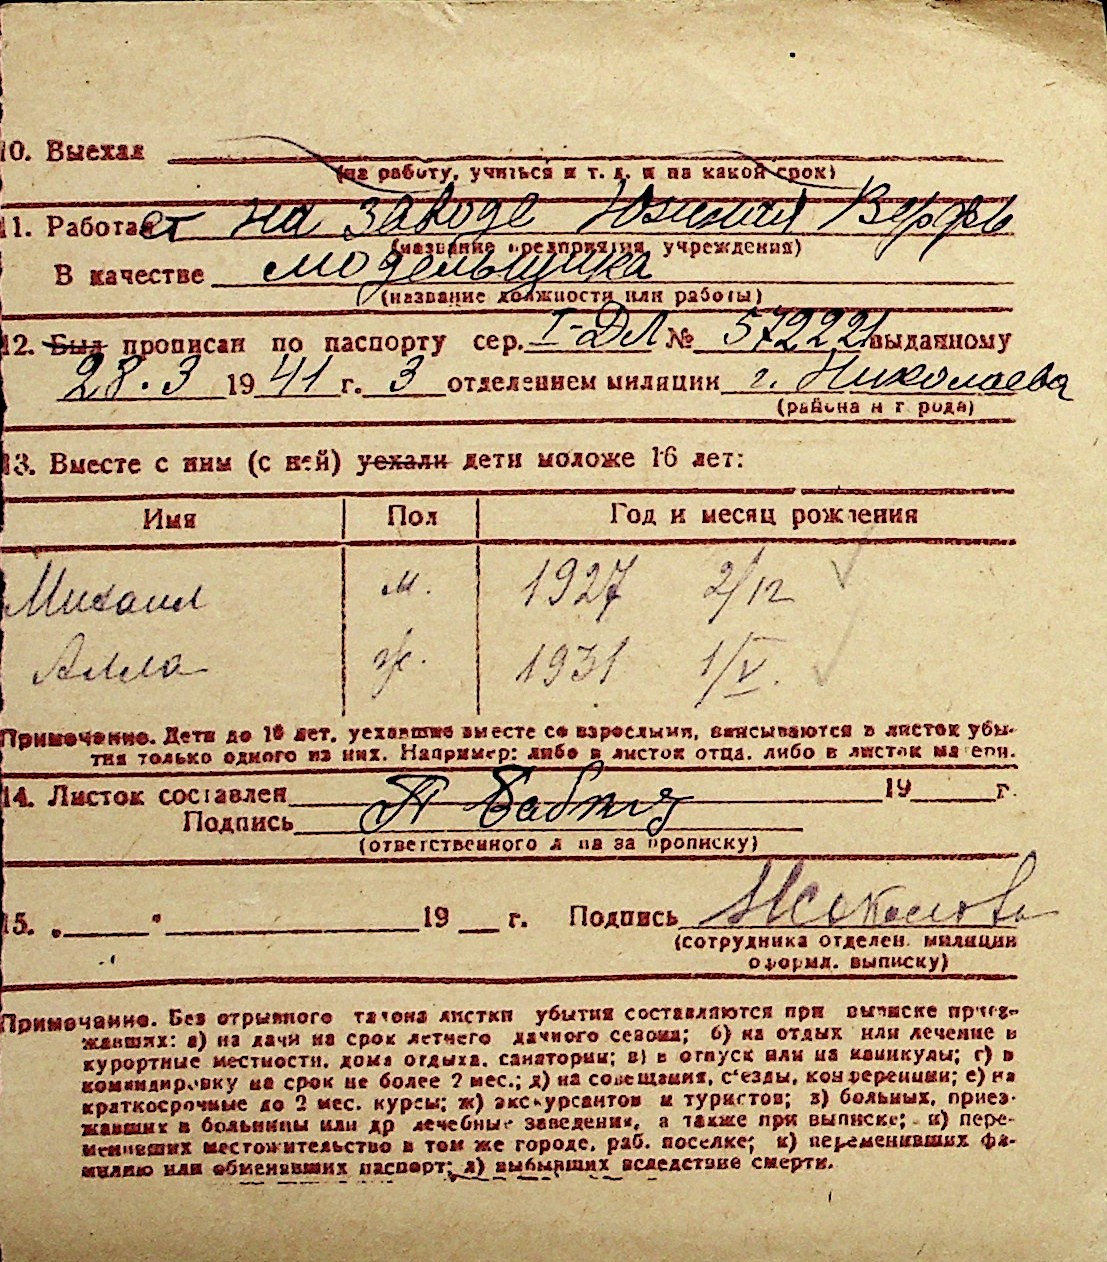 10. Выехал
(на работу, учиться и т. д. и на какой срок)
11. Работает на заводе Южная Верфь
(название предприятия, учреждения)
В качестве модельщика
(название должности или работы)
12. Был прописан по паспорту сер. I-ДЛ № 572221 выданному
28.3 1941 г. 3 отделением милиции г. Николаева
(района и города)
13. Вместе с ним (с ней) уехали дети моложе 16 лет:
Имя Пол Год и месяц рождения
Михаил м. 1927 2/12
Алла ж. 1931 1/V.
Примечание. Дети до 16 лет, уехавшие вместе со взрослыми, вписываются в листок убы-
тия только одного из них. Например: либо в листок отца, либо в листок матери.
14. Листок составлен 19 г.
Подпись
(ответственного лица за прописку)
15. „ " 19 г. Подпись
(сотрудника отделен. милиции
оформл. выписку)
Примечание. Без отрывного талона листки убытия составляются при выписке приез-
жавших: а) на дачи на срок летнего дачного сезона; б) на отдых или лечение в
курортные местности, дома отдыха, санатории; в) в отпуск или на каникулы; г) в
командировку на срок не более 2 мес.; д) на совещания, с'езды, конференции; е) на
краткосрочные до 2 мес. курсы; ж) экскурсантов и туристов; з) больных, приез-
жавших в больницы или др лечебные заведения, а также при выписке; и) пере-
менивших местожительство в том же городе, раб. поселке; к) переменивших фа-
милию или обменявших паспорт; л) выбывших вследствие смерти.